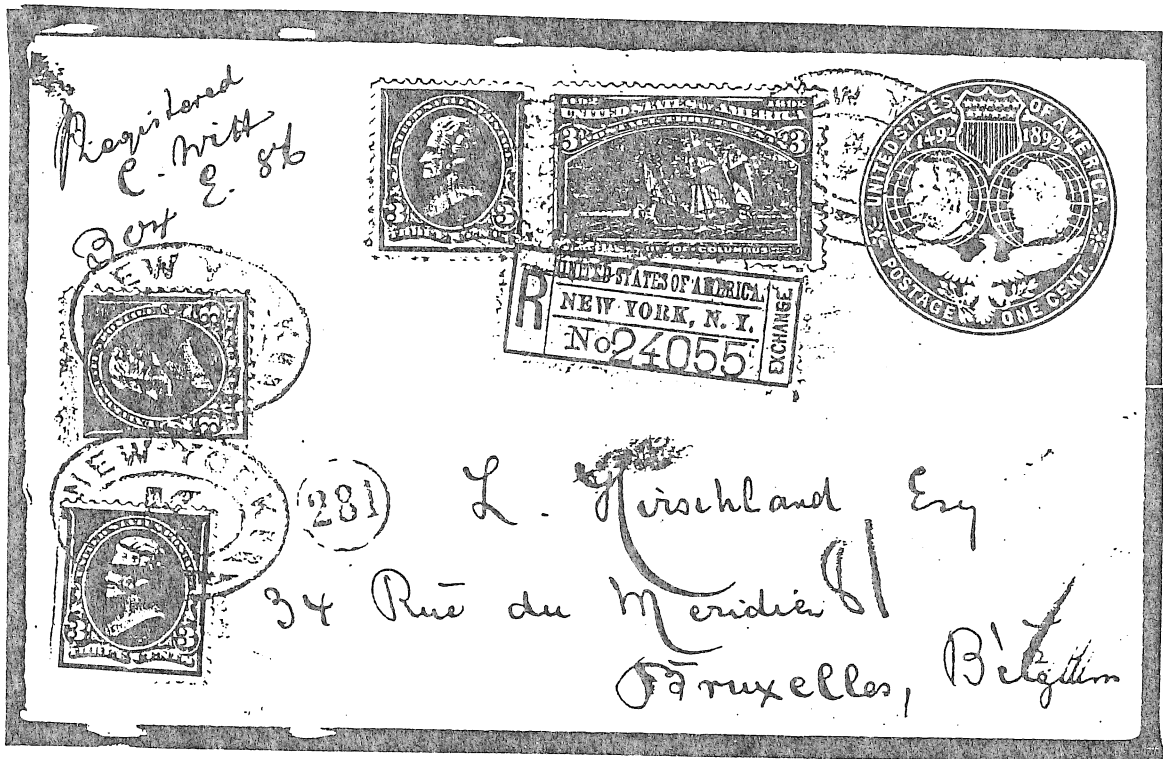 Registered
C. Witt
Box E. 86
3 3
THREE CENTS
UNITED STATES OF AMERICA
3 3
UNITED STATES OF AMERICA
1492 1892
POSTAGE ONE CENT.
R
UNITED STATES OF AMERICA.
NEW YORK, N. Y.
No 24055
EXCHANGE
NEW Y
3
NEW YORK
281
3 3
THREE CENTS
L. Hirschland Esq
34 Rue du Meridien
Bruxelles, Belgium